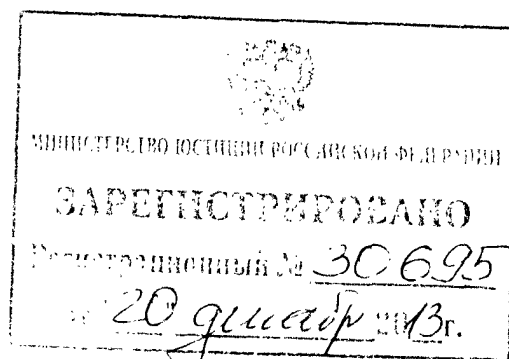 МИНИСТЕРСТВО ЮСТИЦИИ РОССИЙСКОЙ ФЕДЕРАЦИИ
ЗАРЕГИСТРИРОВАНО
Регистрационный № 30695
от "20 декабря 2013г.